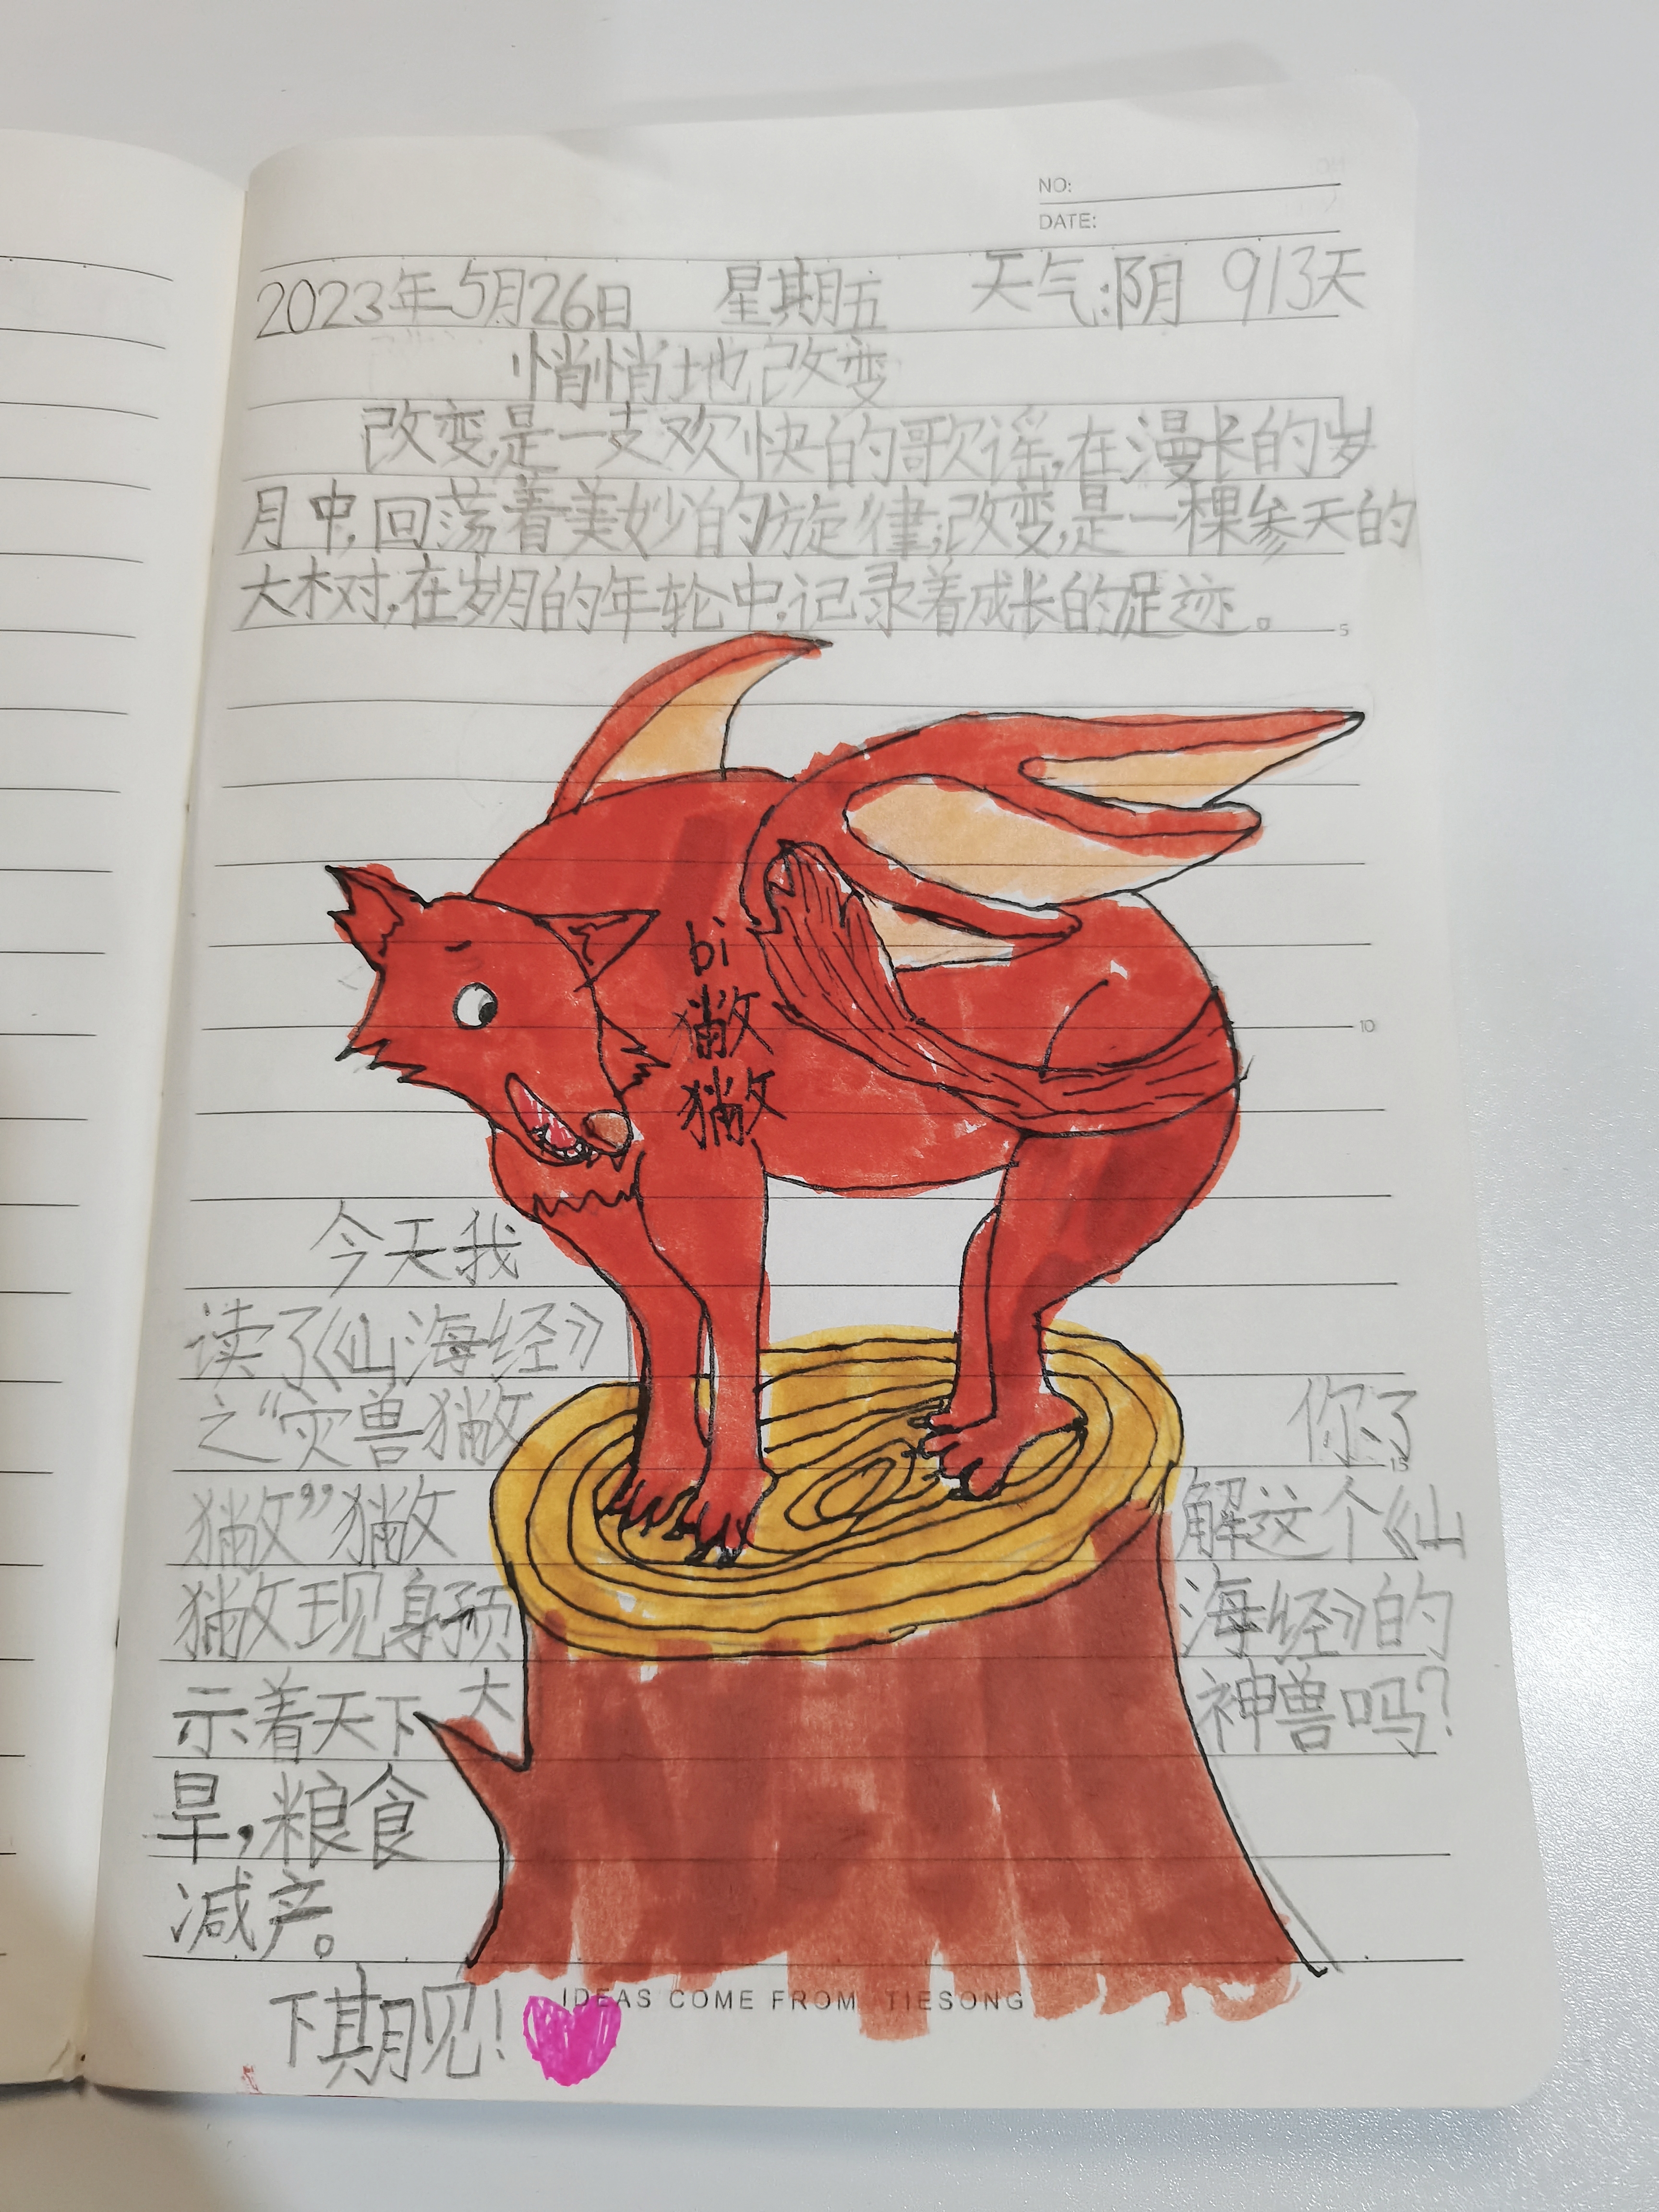 NO:
DATE:
2023年5月26日 星期五 天气:阴 913天
悄悄地改变
改变,是一支欢快的歌谣,在漫长的岁
月中,回荡着美妙的旋律;改变,是一棵参天的
大树,在岁月的年轮中,记录着成长的足迹。
5
bi
獙
獙
10
今天我
读了《山海经》
之“灾兽獙
獙”獙
獙现身预
示着天下大
旱,粮食
减产。
你了
15
解这个《山
海经》的
神兽吗?
IDEAS COME FROM TIESONG
下期见!